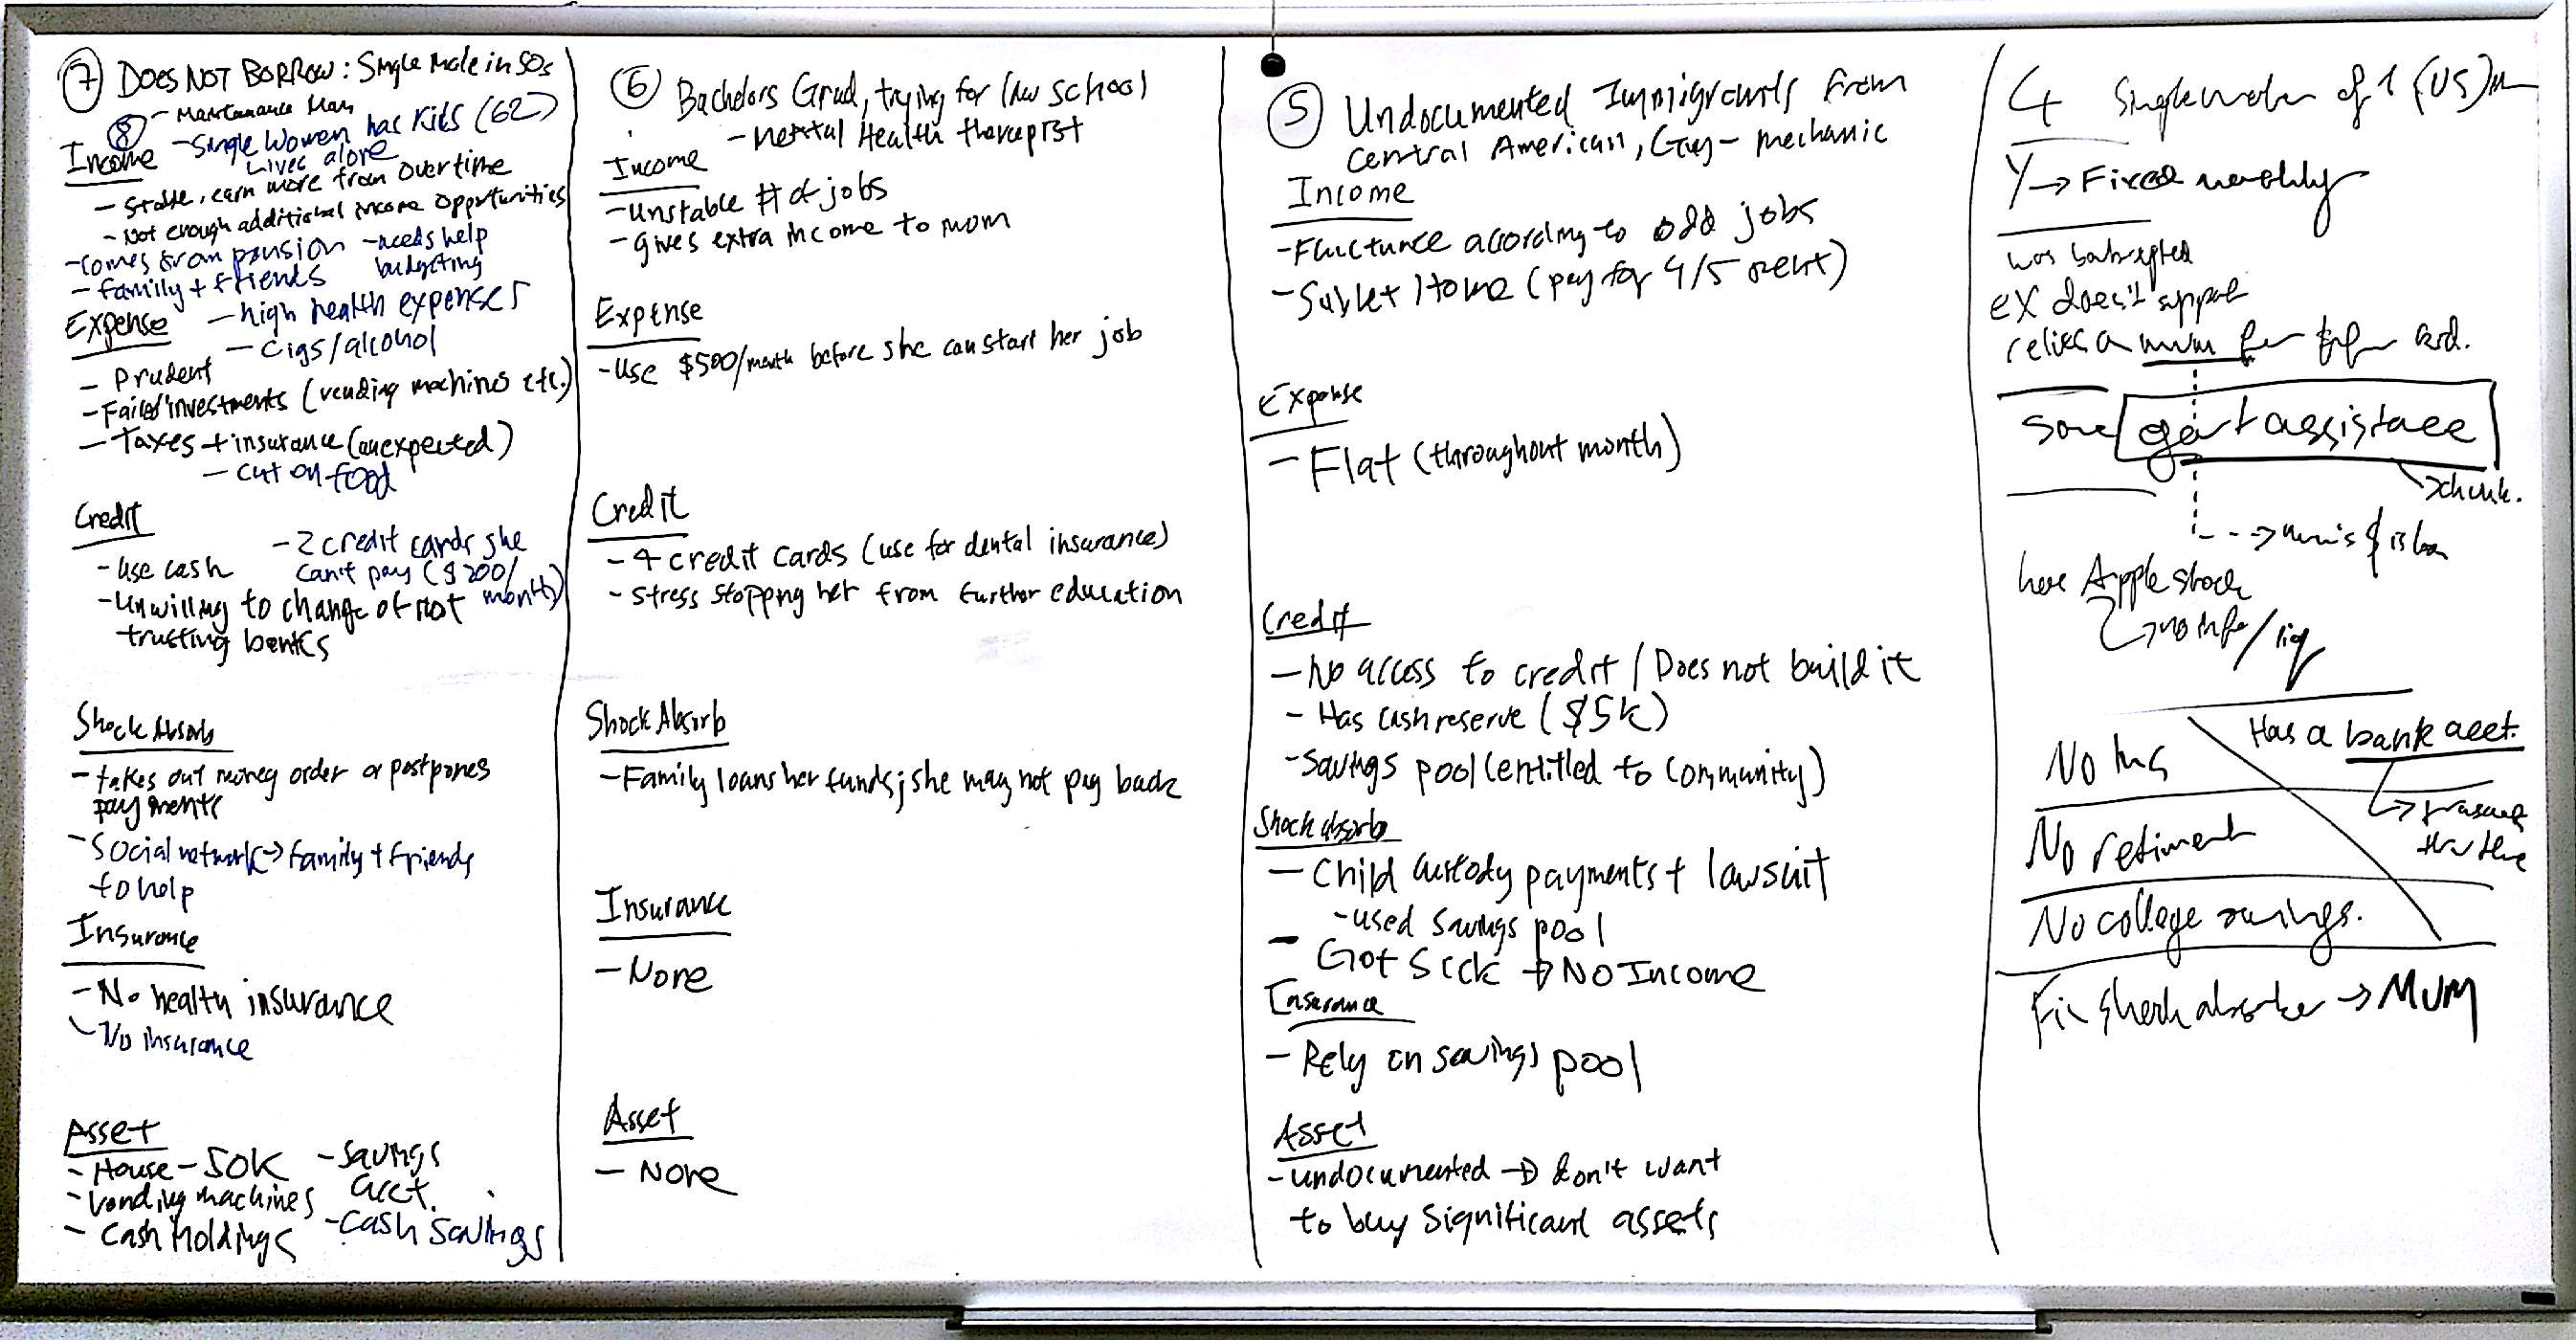 7 DOES NOT BORROW: Single Male in 50s
- Maintanance Man
8 - Single Women has Kids (62)
Lives alone
Income
- Stable, earn more from overtime
- Not enough additional income opportunities
- comes from pension
- needs help budgeting
- family + friends
Expense
- high health expenses
- cigs/alcohol
- Prudent
- Failed investments (vending machines etc.)
- Taxes + insurance (unexpected)
- cut on food
Credit
- use cash
- 2 credit cards she
can't pay ($200/
month)
- Unwilling to change of not
trusting banks
Shock Absorb
- takes out money order or postpones
payments
- Social network → family + friends
to help
Insurance
- No health insurance
- No insurance
Asset
- House - 50K
- Vending machines
- Cash Holdings
- Savings
acct.
- Cash Savings
6 Bachelors Grad, trying for law school
- Mental Health therapist
Income
- Unstable # of jobs
- gives extra income to mom
Expense
- Use $500/month before she can start her job
Credit
- 4 credit cards (use for dental insurance)
- stress stopping her from further education
Shock Absorb
- Family loans her funds; she may not pay back
Insurance
- None
Asset
- None
5 Undocumented Immigrants from
Central American, Guy - mechanic
Income
- Fluctuance according to odd jobs
- Sublet Home (pay for 4/5 rent)
Expense
- Flat (throughout month)
Credit
- No access to credit / Does not build it
- Has cash reserve ($5k)
- Savings pool (entitled to community)
Shock absorb
- Child custody payments + lawsuit
- used savings pool
- Got Sick → No Income
Insurance
- Rely on savings pool
Asset
- undocumented → don't want
to buy significant assets
4 Single mother of 1 (US)
Y → Fixed monthly
was
ex does't support
relies on mum for
Some gov't assistace
have Apple stock
→ no info / liq
No Ins
Has a bank acct.
No retiment
No college savings.
Fin shock absorber → MUM